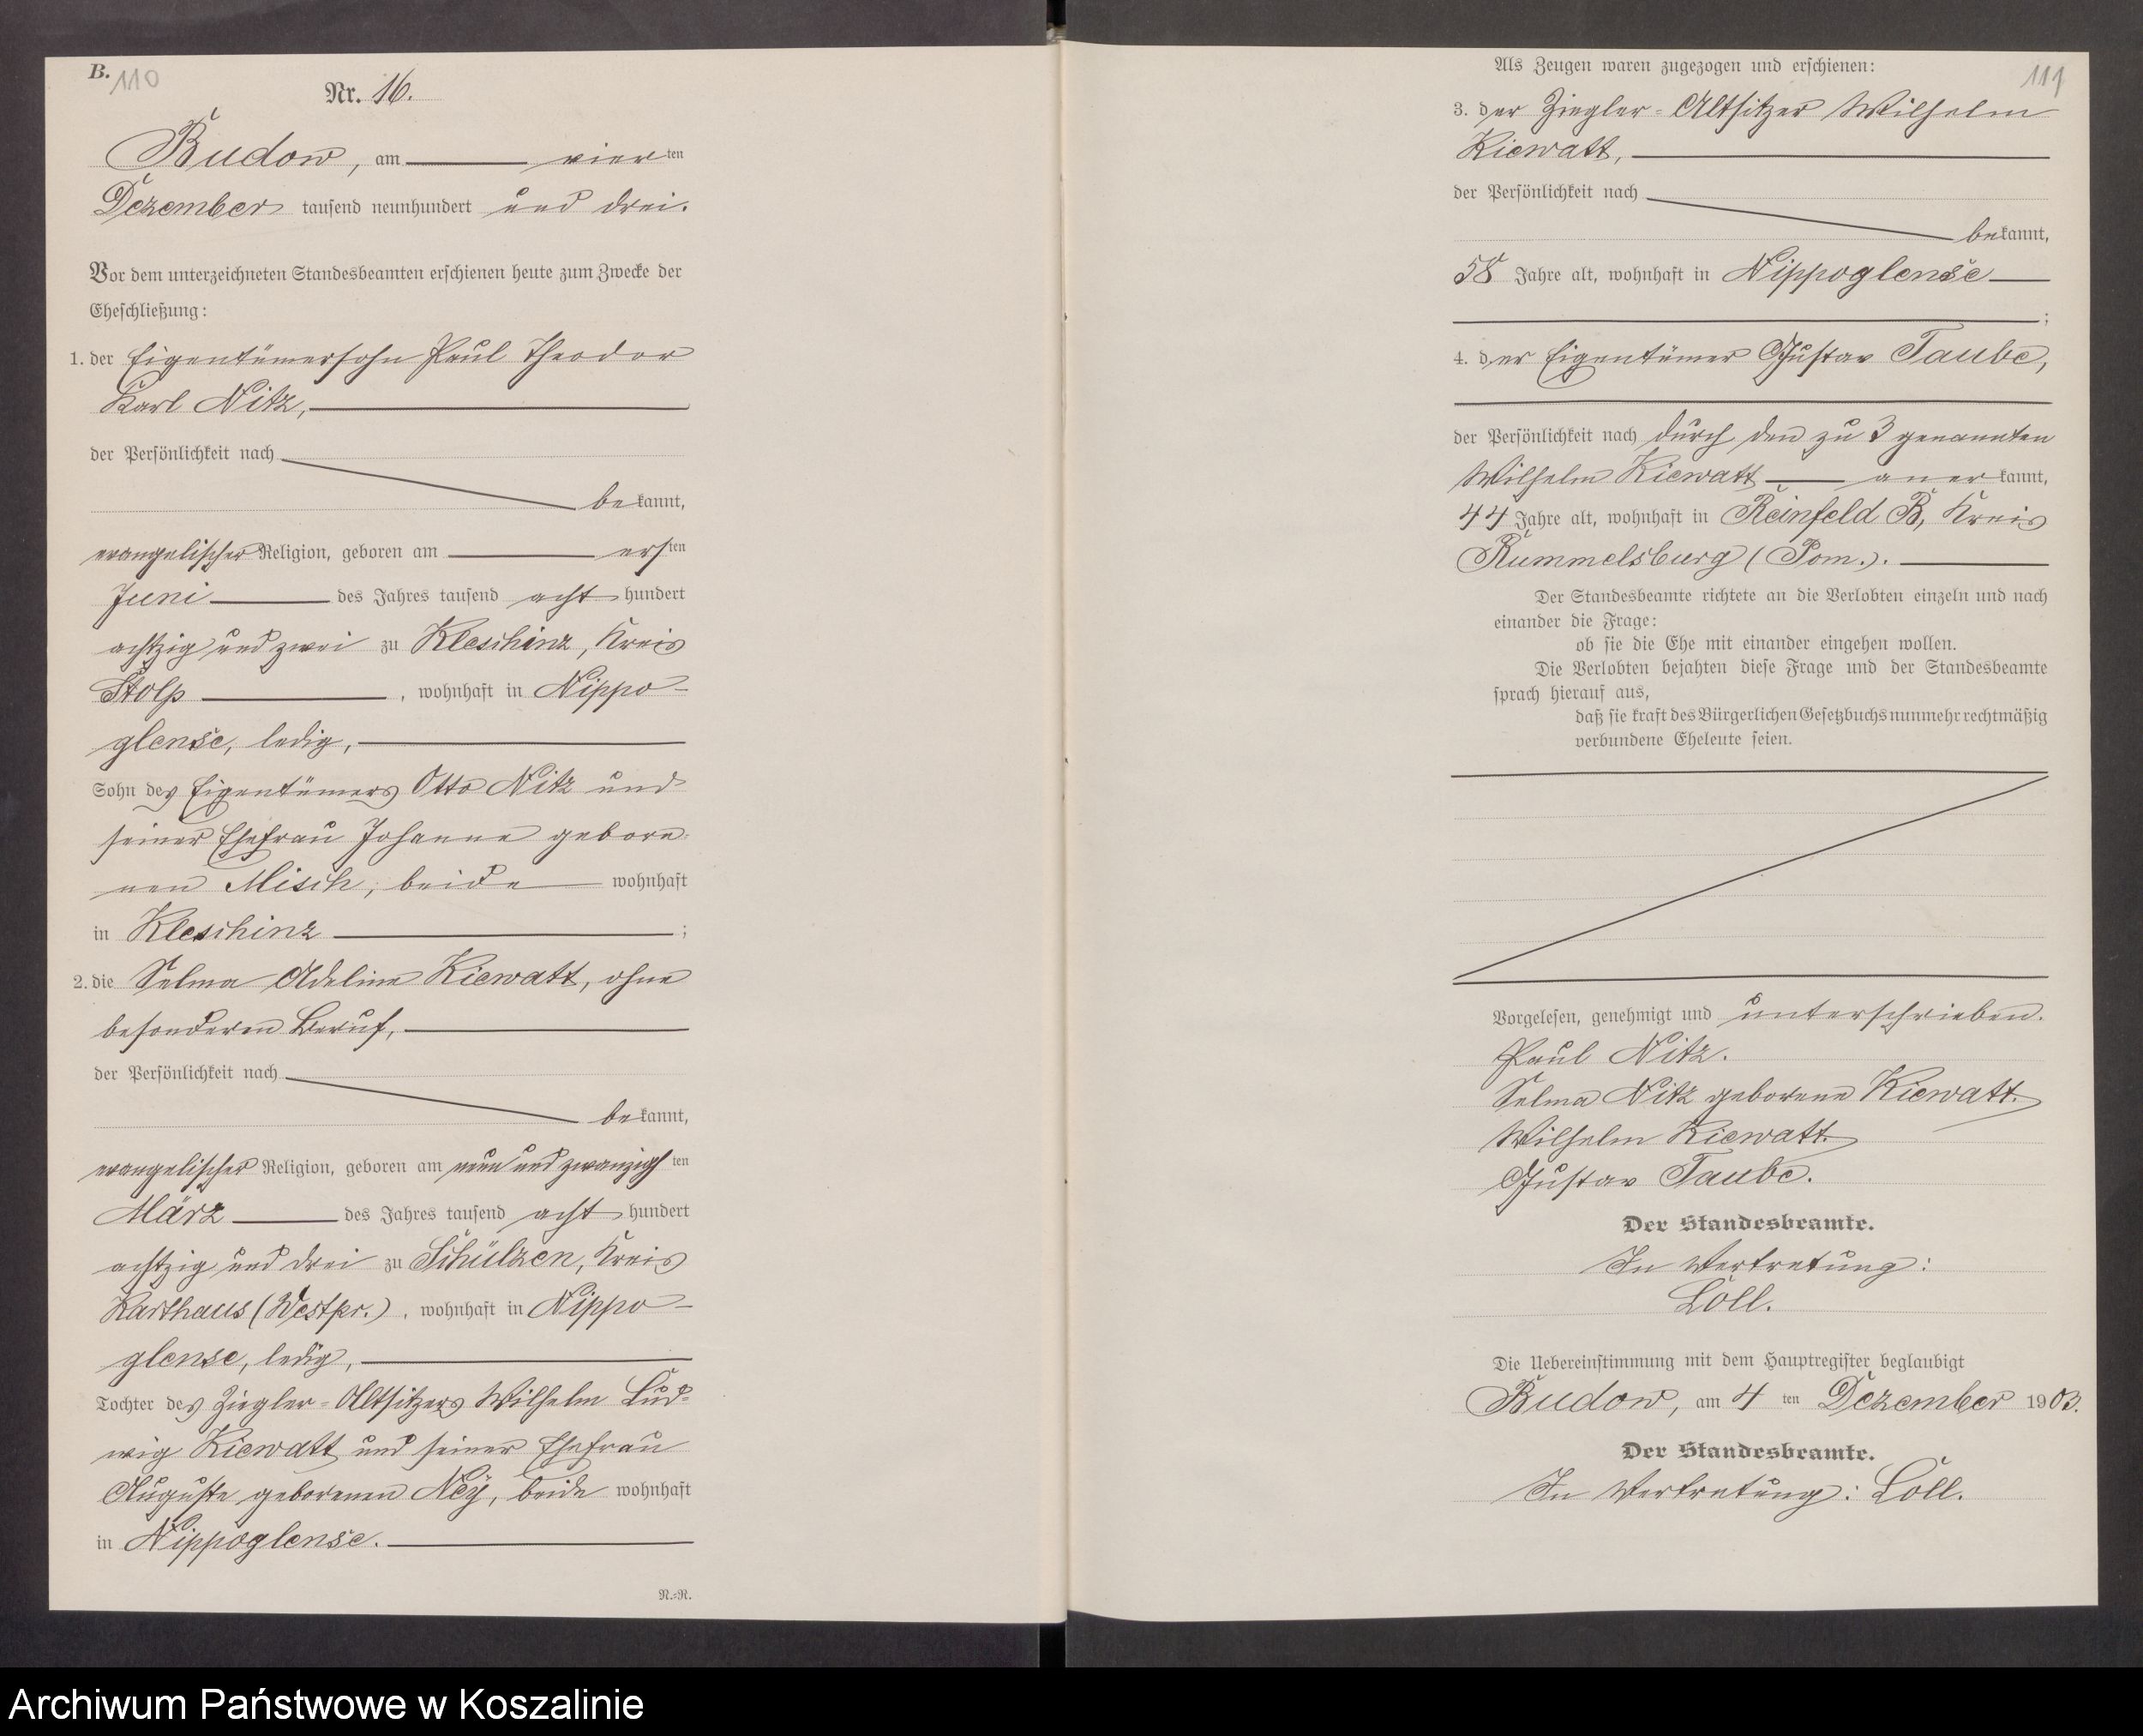 B. 110
Nr. 16.
Budow, am vierten
Dezember tausend neunhundert und drei.
Vor dem unterzeichneten Standesbeamten erschienen heute zum Zwecke der
Eheschließung:
1. der Eigentümersohn Paul Theodor
Karl Nitz,
der Persönlichkeit nach
bekannt,
evangelischer Religion, geboren am ersten
Juni des Jahres tausend acht hundert
achtzig und zwei zu Kleschinz, Kreis
Stolp, wohnhaft in Nippo-
glense, ledig,
Sohn des Eigentümers Otto Nitz und
seiner Ehefrau Johanne gebore-
nen Misch, beide wohnhaft
in Kleschinz ;
2. die Selma Adeline Kiewatt, ohne
besonderen Beruf,
der Persönlichkeit nach
bekannt,
evangelischer Religion, geboren am neun und zwanzigsten
März des Jahres tausend acht hundert
achtzig und drei zu Schülzen, Kreis
Karthaus (Westpr.), wohnhaft in Nippo-
glense, ledig,
Tochter des Ziegler-Altsitzers Wilhelm Lud-
wig Kiewatt und seiner Ehefrau
Auguste geborenen Ney, beide wohnhaft
in Nippoglense.
N.=R.
111
Als Zeugen waren zugezogen und erschienen:
3. der Ziegler-Altsitzer Wilhelm
Kiewatt,
der Persönlichkeit nach
bekannt,
58 Jahre alt, wohnhaft in Nippoglense
;
4. der Eigentümer Gustav Taube,
der Persönlichkeit nach durch den zu 3 genannten
Wilhelm Kiewatt anerkannt,
44 Jahre alt, wohnhaft in Reinfeld B, Kreis
Rummelsburg (Pom.).
Der Standesbeamte richtete an die Verlobten einzeln und nach
einander die Frage:
ob sie die Ehe mit einander eingehen wollen.
Die Verlobten bejahten diese Frage und der Standesbeamte
sprach hierauf aus,
daß sie kraft des Bürgerlichen Gesetzbuchs nunmehr rechtmäßig
verbundene Eheleute seien.
Vorgelesen, genehmigt und unterschrieben.
Paul Nitz.
Selma Nitz geborene Kiewatt.
Wilhelm Kiewatt.
Gustav Taube.
Der Standesbeamte.
In Vertretung:
Löll.
Die Uebereinstimmung mit dem Hauptregister beglaubigt
Budow, am 4 ten Dezember 1903.
Der Standesbeamte.
In Vertretung: Löll.
Archiwum Państwowe w Koszalinie